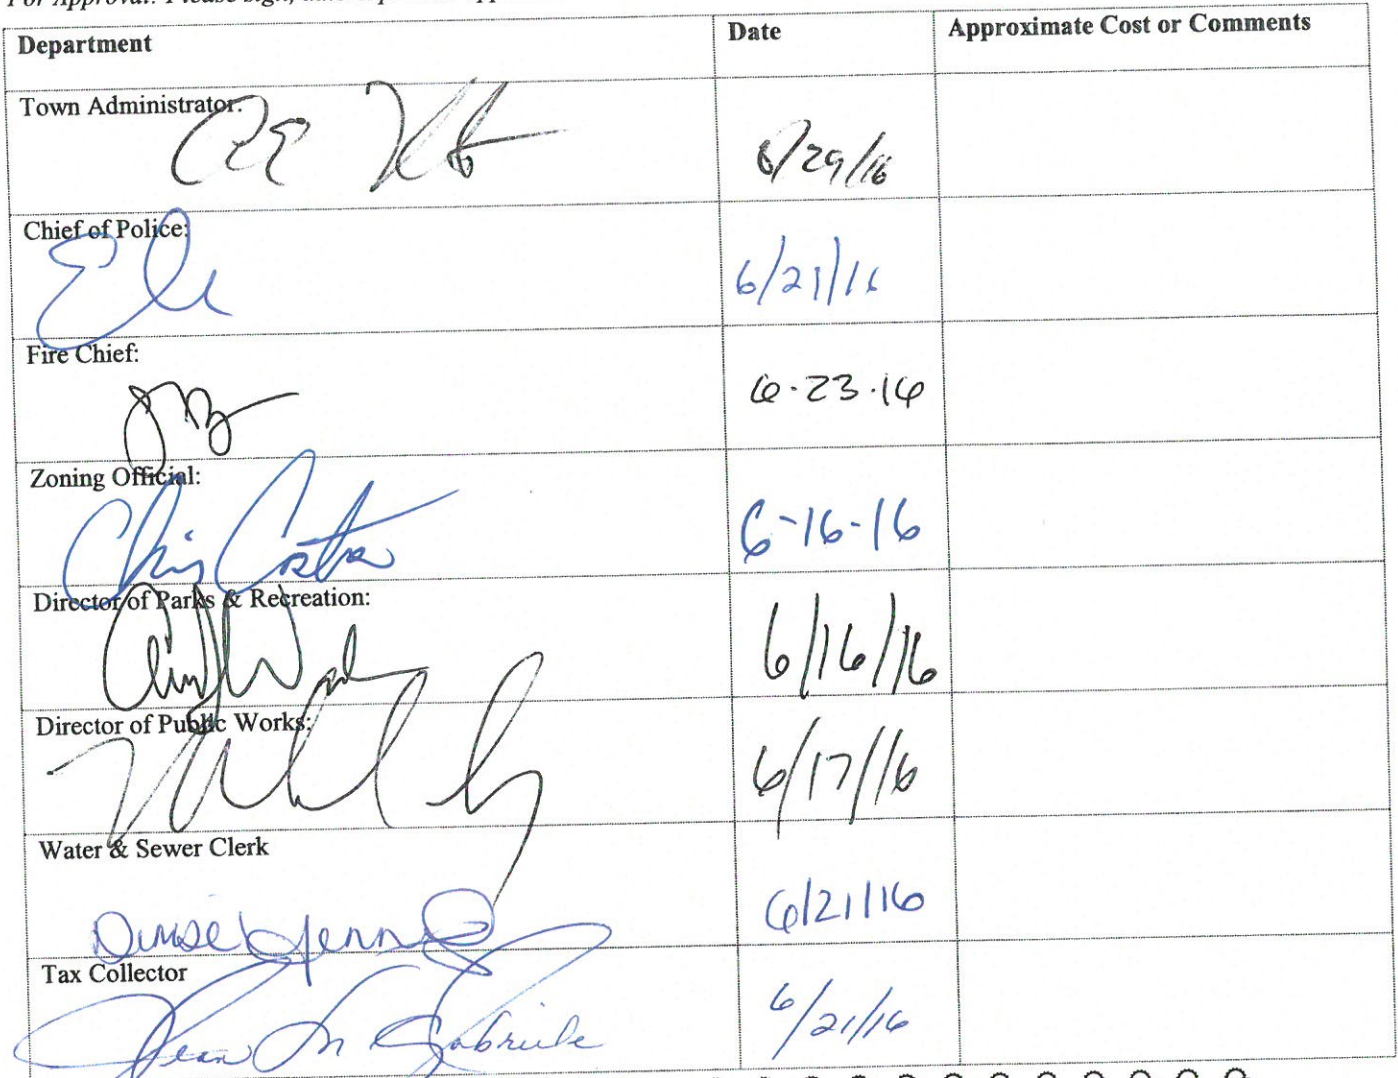 For Approval: Please sign,
Department Date Approximate Cost or Comments
Town Administrator: 6/29/16
Chief of Police: 6/21/16
Fire Chief: 6·23·16
Zoning Official: Chris Costa 6-16-16
Director of Parks & Recreation: 6/16/16
Director of Public Works: 6/17/16
Water & Sewer Clerk
Denise 6/21/16
Tax Collector
Jean M Gabriele 6/21/16